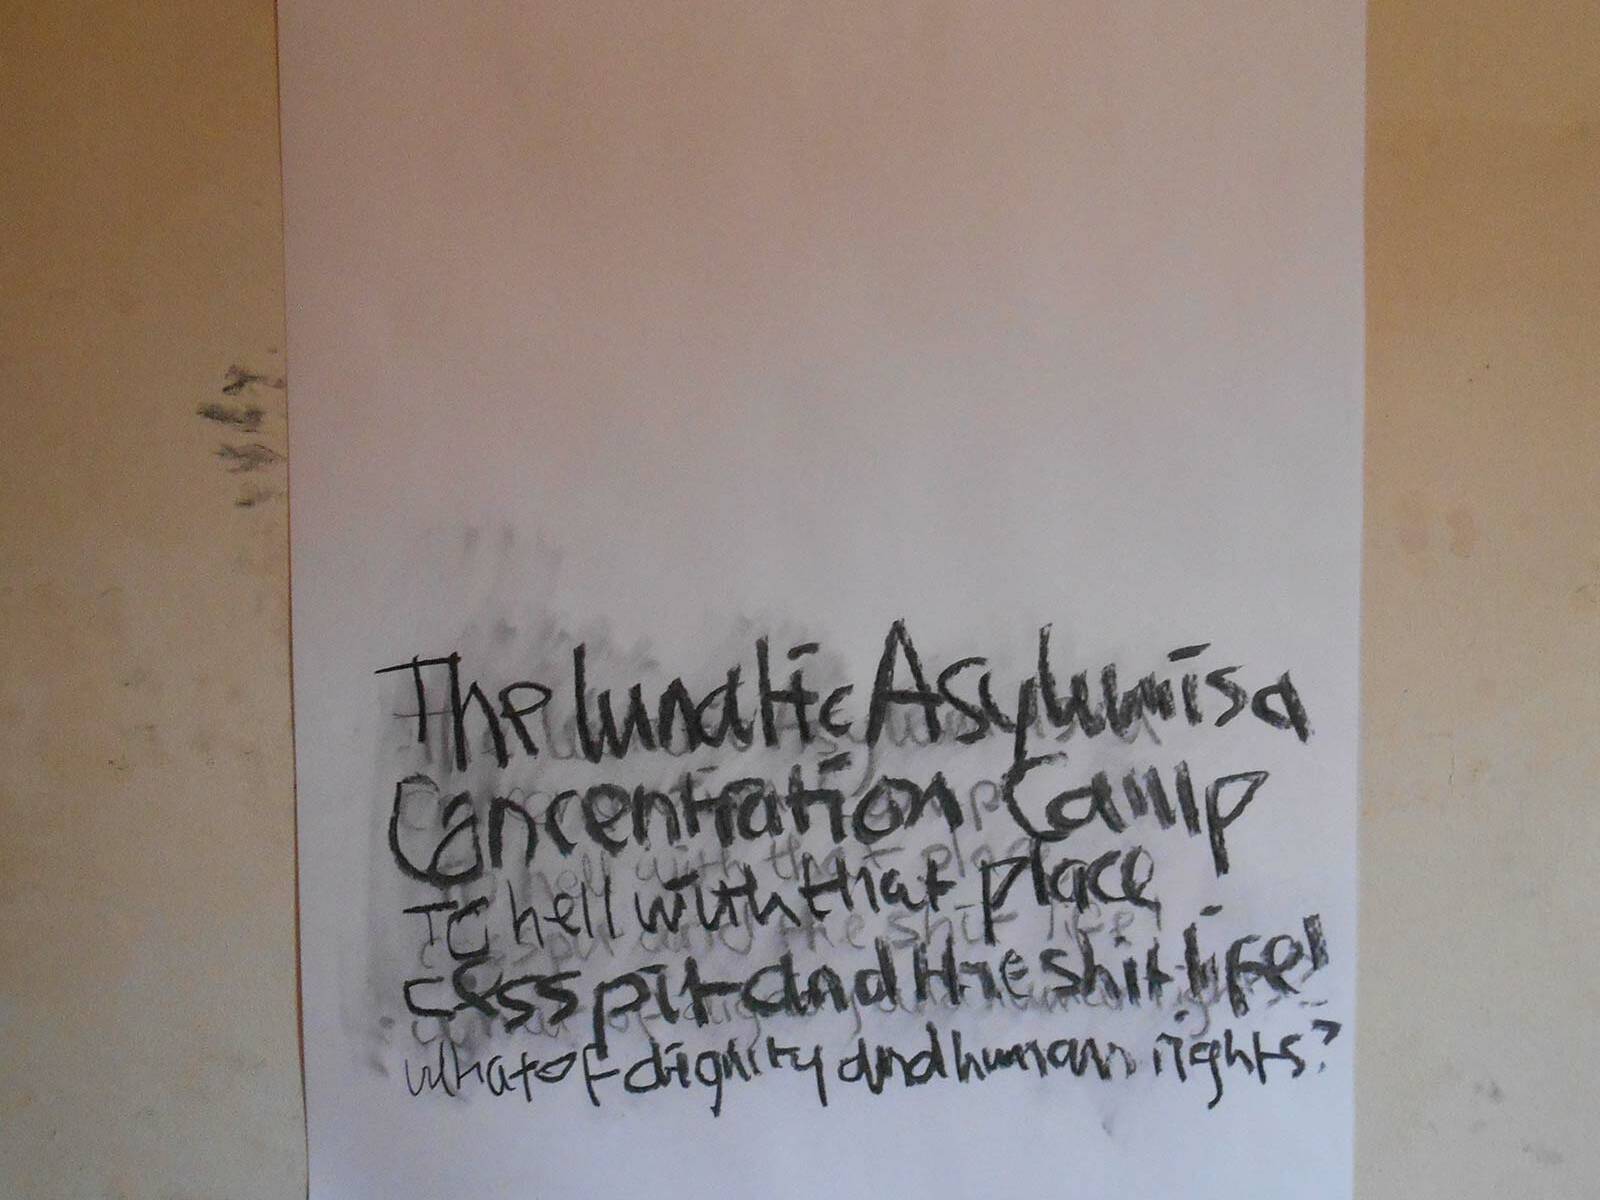 The lunatic Asylum is a
Concentration Camp
To hell with that place
cesspit and the shit life!
what of dignity and human rights?